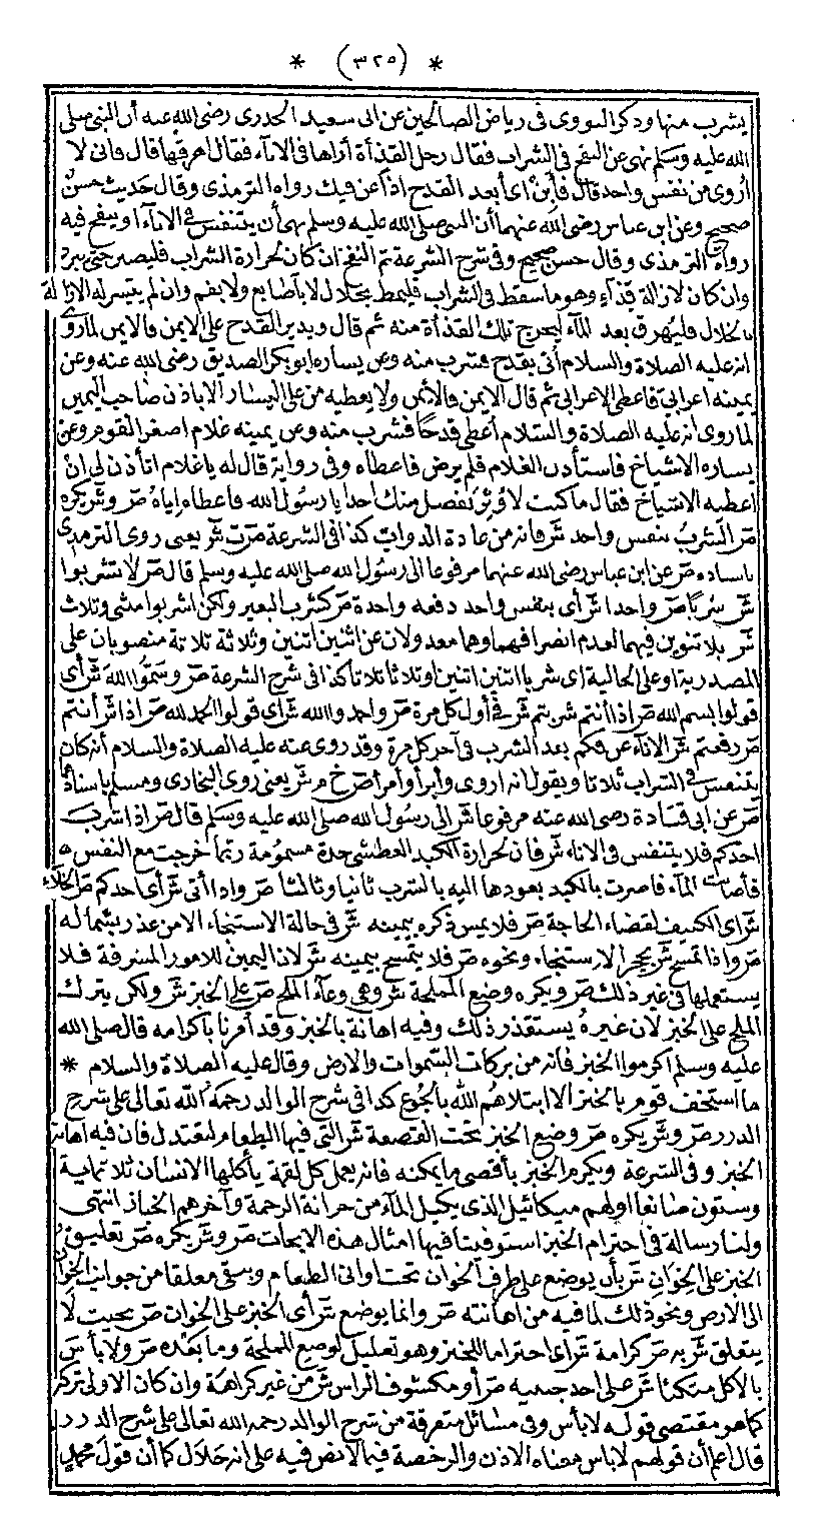 * (٣٢٥) *
يشرب منها وذكر النووى فى رياض الصالحين عن ابى سعيد الخدرى رضى الله عنه أن النبى صلى
الله عليه وسلم نهى عن النفخ فى الشراب فقال رجل القذأة أراها فى الاناء فقال اهرقها قال فانى لا
أروى من نفس واحد قال فأبن أى أبعد القدح اذاً عن فيك رواه الترمذى وقال حديث حسن
صحيح وعن ابن عباس رضى الله عنهما أن النبى صلى الله عليه وسلم نهى أن يتنفس فى الاناء أو ينفخ فيه
رواه الترمذى وقال حسن صحيح وفى شرح الشرعة ثم النفخ ان كان لحرارة الشراب فليصبر حتى يبرد
وان كان لازالة قذاء وهو ما سقط فى الشراب فليمط بخلال لا بأصابع ولا بفم وان لم يتيسر له الازالة
بالخلال فليهرق بعد الماء ليخرج تلك القذأة منه ثم قال ويدير القدح على الايمن فالايمن لما روى
انه عليه الصلاة والسلام أتى بقدح فشرب منه وعن يساره ابو بكر الصديق رضى الله عنه وعن
يمينه اعرابى فاعطى الاعرابى ثم قال الايمن فالأيمن ولا يعطيه من على اليسار الا باذن صاحب اليمين
لما روى انه عليه الصلاة والسلام أعطى قدحًا فشرب منه وعن يمينه غلام اصغر القوم وعن
يساره الاشياخ فاستأذن الغلام فلم يرض فاعطاه وفى رواية قال له يا غلام اتأذن لى ان
اعطيه الاشياخ فقال ما كنت لاوثر بفضل منك احدا يا رسول الله فاعطاه اياه ص و ش يكره
ص الشرب بنفس واحد ش فانه من عادة الدواب كذا فى الشرعة ص ت ش يعنى روى الترمذى
باسناده ص عن ابن عباس رضى الله عنهما مرفوعا الى رسول الله صلى الله عليه وسلم قال ص لا تشربوا
ش شربًا ص واحدا ش أى بنفس واحد دفعه واحدة ص كشرب البعير ولكن اشربوا مثنى وثلاث
ش بلا تنوين فيهما لعدم انصرافهما وهما معدولان عن اثنين اثنين وثلاثة ثلاثة منصوبان على
المصدرية او على الحالية اى شربا اثنين اثنين او ثلاثا ثلاثا كذا فى شرح الشرعة ص وسموا الله ش أى
قولوا بسم الله ص اذا أنتم شربتم ش فى أول كل مرة ص واحمدوا الله ش أى قولوا الحمد لله ص اذا ش أنتم
ص رفعتم ش الاناء عن فمكم بعد الشرب فى آخر كل مرة وقد روى عنه عليه الصلاة والسلام أنه كان
يتنفس فى الشراب ثلاثا ويقول انه اروى وأبرأ وأمرأ ص خ م ش يعنى روى البخارى ومسلم باسناده
ص عن ابى قتادة رضى الله عنه مرفوعا ش الى رسول الله صلى الله عليه وسلم قال ص اذا شرب
احدكم فلا يتنفس فى الاناء ش فان لحرارة الكبد العطشى حدة مسمومة ربما خرجت مع النفس
فأصابت الماء فاضرت بالكبد بعودها اليه بالشرب ثانيا وثالثا ص واذا أتى ش أى احدكم ص الخلاء
ش أى الكنيف لقضاء الحاجة ص فلا يمس ذكره بيمينه ش فى حالة الاستنجاء الا من عذر بشماله
ص واذا تمسح ش بحجر الاستنجاء ونحوه ص فلا يتمسح بيمينه ش لان اليمين للامور المشرفة فلا
يستعملها فى غير ذلك ص ويكره وضع المملحة ش وهى وعاء الملح ص على الخبز ش ولكن يترك
الملح على الخبز لان غيره يستقذر ذلك وفيه اهانة بالخبز وقد أمرنا باكرامه قال صلى الله
عليه وسلم اكرموا الخبز فانه من بركات السموات والارض وقال عليه الصلاة والسلام *
ما استخف قوم بالخبز الا ابتلاهم الله بالجوع كذا فى شرح الوالد رحمه الله تعالى على شرح
الدرر ص و ش يكره ص وضع الخبز تحت القصعة ش التى فيها الطعام لتعتدل فان فيه اهانة
الخبز وفى الشرعة ويكرم الخبز بأقصى ما يمكنه فانه يعمل كل لقمة يأكلها الانسان ثلاثمائة
وستون صانعا اولهم ميكائيل الذى يكيل الماء من خزانة الرحمة وآخرهم الخباز انتهى
ولنا رسالة فى احترام الخبز استوفينا فيها امثال هذه الابحاث ص و ش يكره ص تعليق
الخبز على الخوان ش بأن يوضع على طرف الخوان تحت اوانى الطعام ويبقى معلقا من جوانب الخوان
الى الارض ونحو ذلك لما فيه من اهانته ص وانما يوضع ش أى الخبز على الخوان ص بحيث لا
يتعلق ش به ص كرامة ش أى احتراما للخبز وهو تعليل لوضع المملحة وما بعده ص ولا بأس
بالاكل متكئا ش على احد جنبيه ص أو مكشوف الراس ش من غير كراهة وان كان الاولى تركه
كما هو مقتضى قوله لا بأس وفى مسائل متفرقة من شرح الوالد رحمه الله تعالى على شرح الدرر
قال اعلم أن قولهم لا باس معناه الاذن والرخصة فيما لا نص فيه على انه حلال كما أن قول محمد